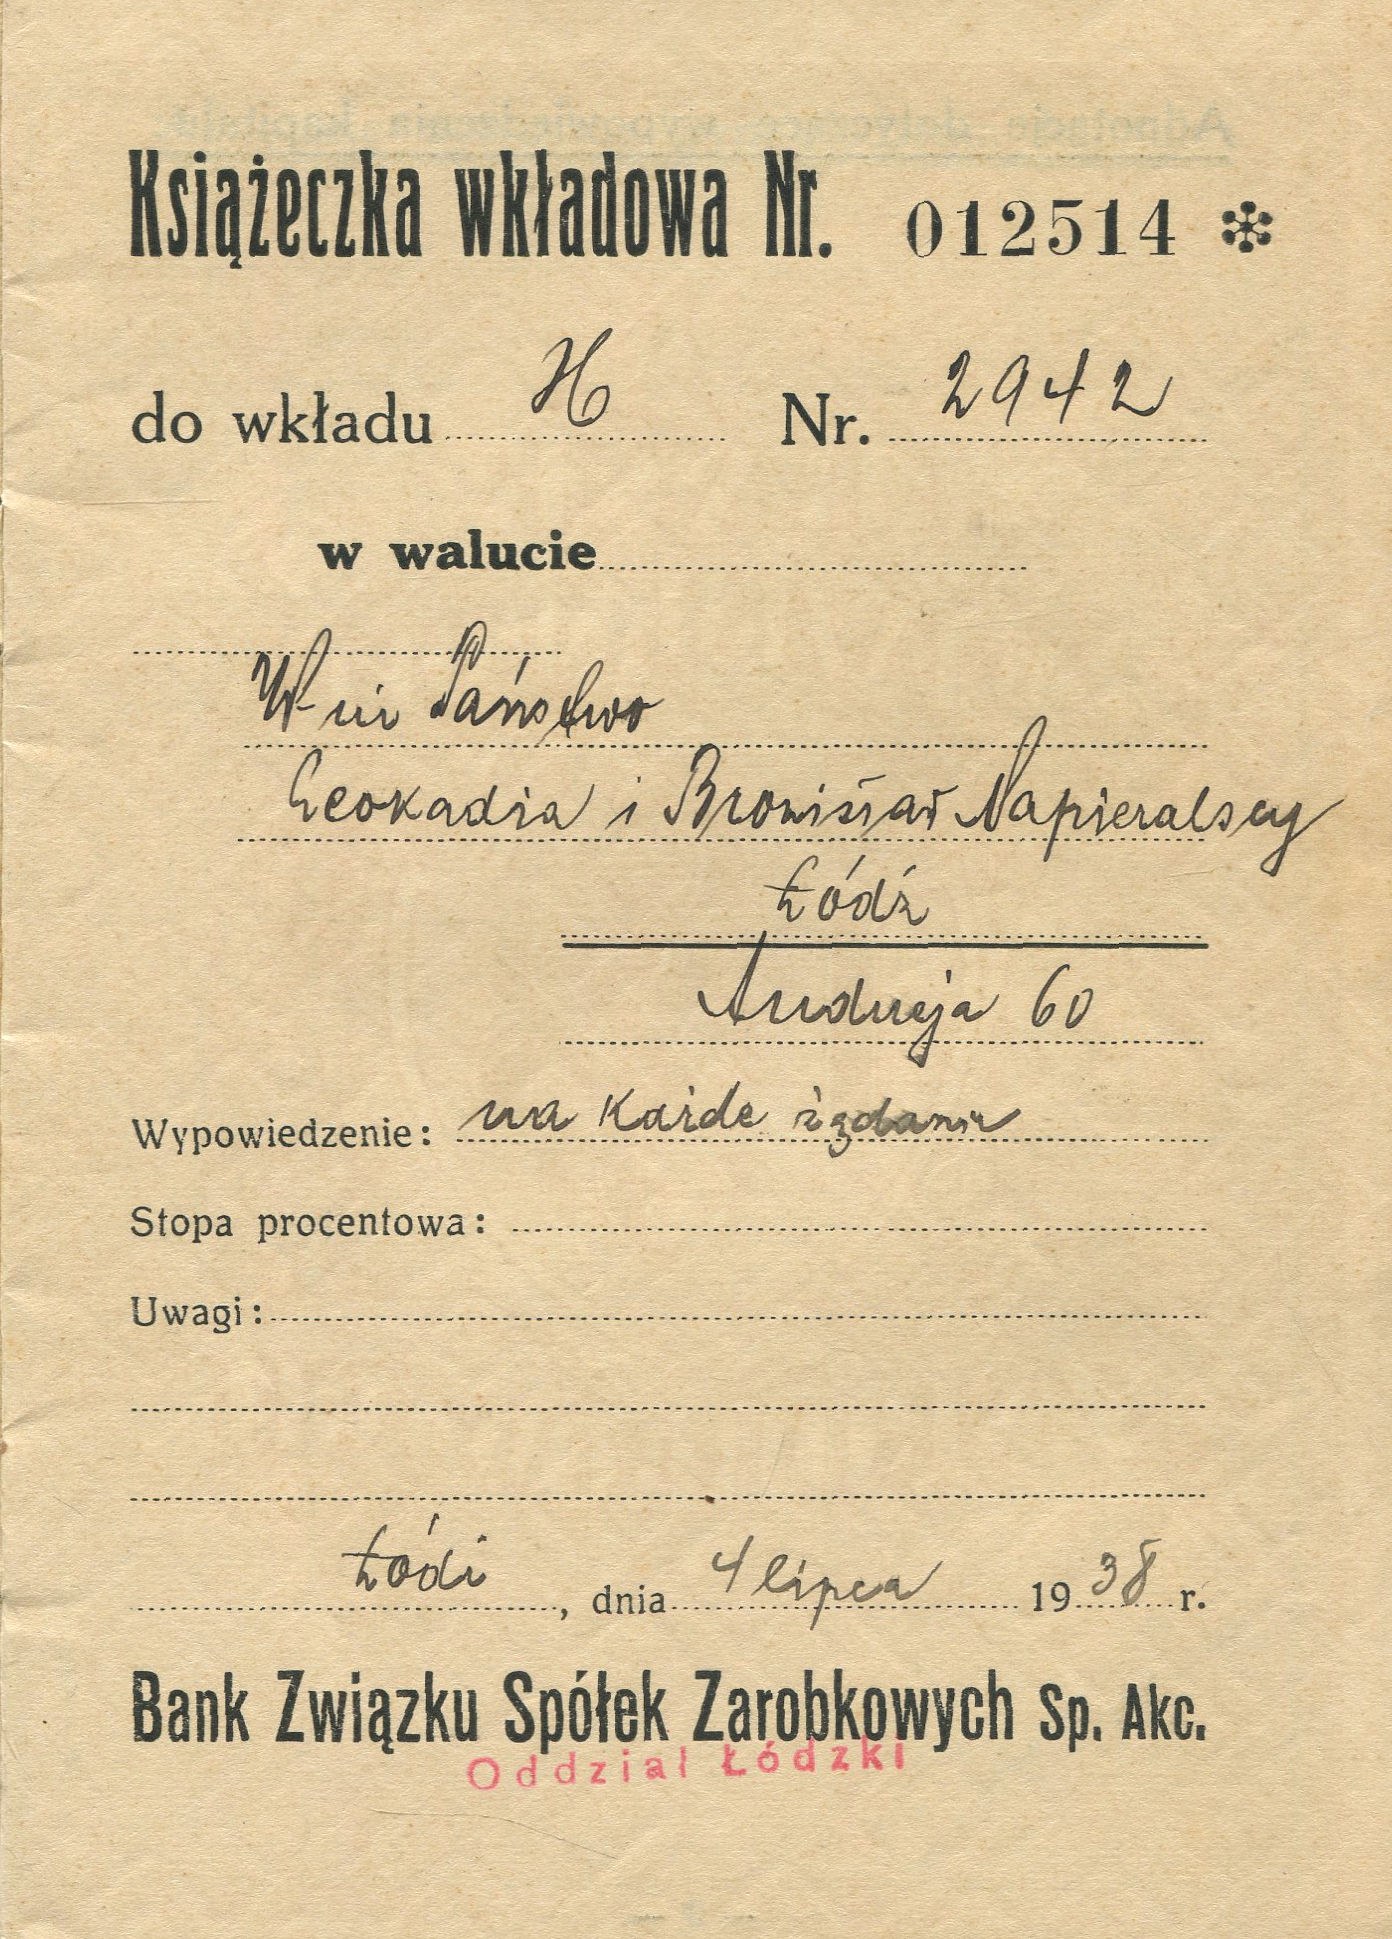 Książeczka wkładowa Nr. 012514 *
do wkładu H Nr. 2942
w walucie
W ni Państwo
Leokadia i Bronisław Napieralscy
Łódź
Andrzeja 60
Wypowiedzenie: na każde żądanie
Stopa procentowa:
Uwagi:
Łódź, dnia 4 lipca 1938 r.
Bank Związku Spółek Zarobkowych Sp. Akc.
Oddział Łódzki